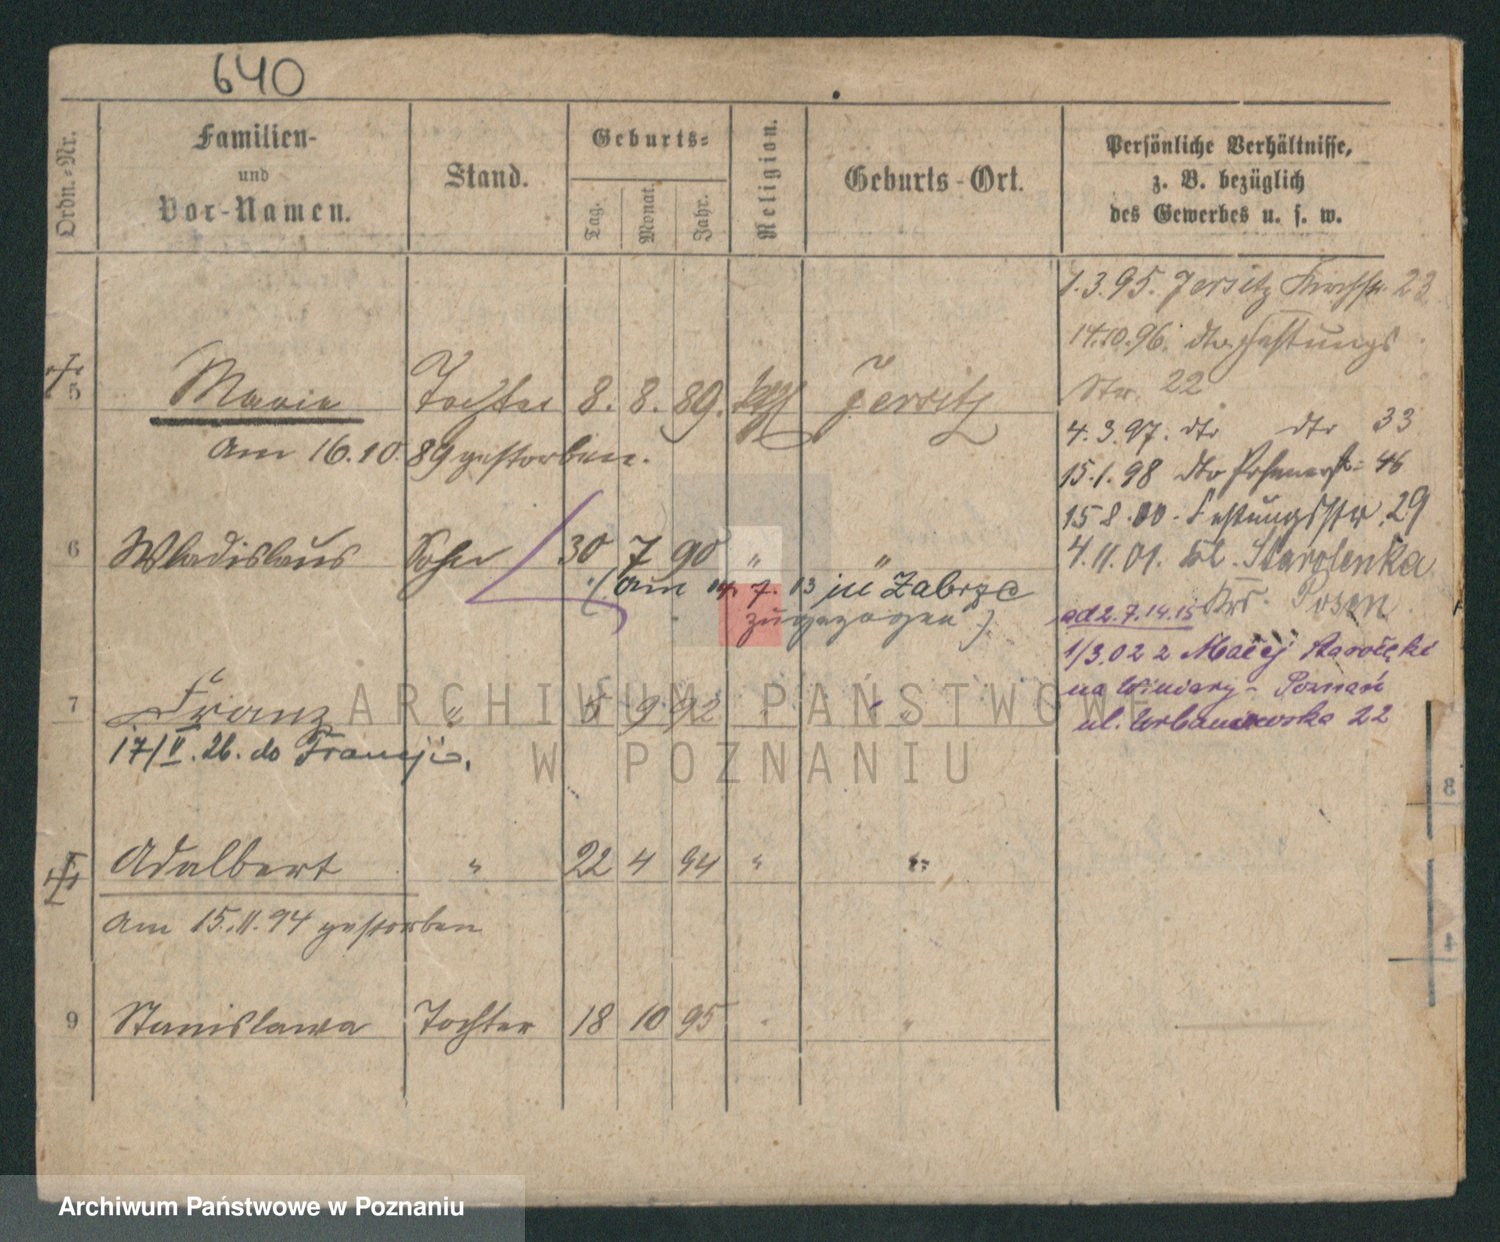 640
Ordn.-Nr.
Familien-
und
Vor-Namen.
Stand.
Geburts-
Tag.
Monat.
Jahr.
Religion.
Geburts-Ort.
Persönliche Verhältnisse,
z. B. bezüglich
des Gewerbes u. s. w.
1.3.95. Jersitz Kirchstr. 23
14.10.96. dto Festungs
Str. 22
5 Marie Tochter 8. 8. 89. kath Jersitz
4.3.97. dto dto 33
am 16.10.89 gestorben.
15.1.98 dto Posenerstr. 46
15 8.00. Festungsstr. 29
6 Wladislaus Sohn 30 7 90 " "
4.11.01. Starolenka
(am 14. 7. 13 in Zabrze
zugezogen)
Krs. Posen
ad 2. 7. 14. 15
1/3.02 z Małej Starołęki
na Winiary - Poznań
ul. Urbanowska 22
7 Franz " 5 9 92 " "
17/II. 26. do Francji.
Adalbert " 22 4 94 " "
am 15.11.94 gestorben
9 Stanislawa Tochter 18 10 95 " "
ARCHIWUM PAŃSTWOWE
W POZNANIU
Archiwum Państwowe w Poznaniu